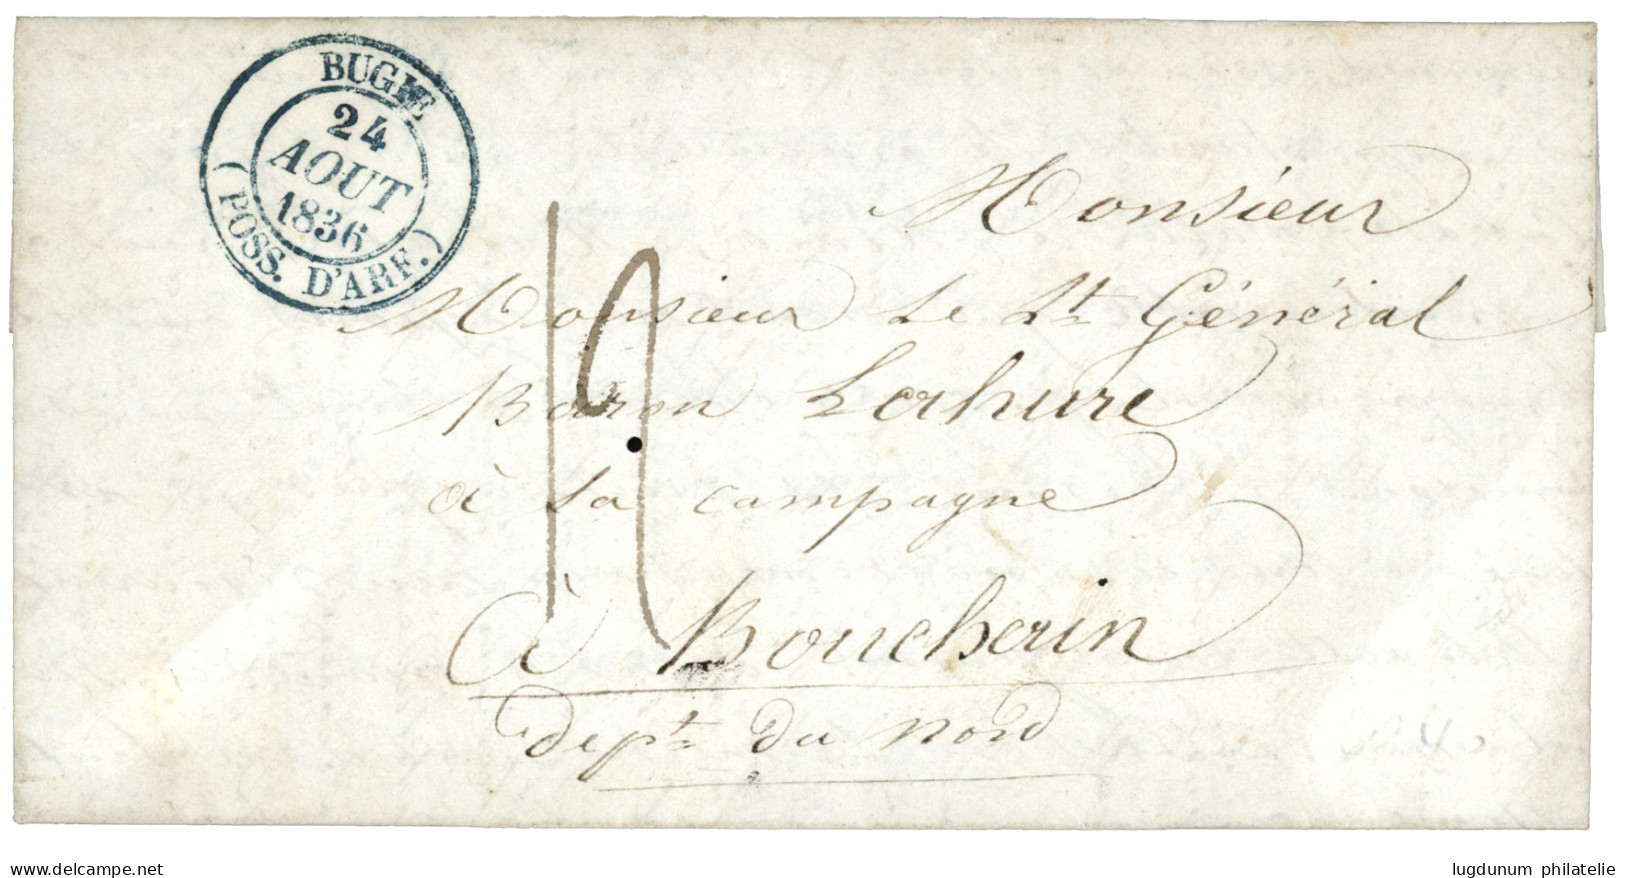 BUGIE
24
AOUT
1836
(POSS. D'AFR.)
Monsieur
Monsieur Le Lt Général
Baron Lahure
à sa campagne
à Bouchain
dept du Nord
delcampe.net
lugdunum philatelie